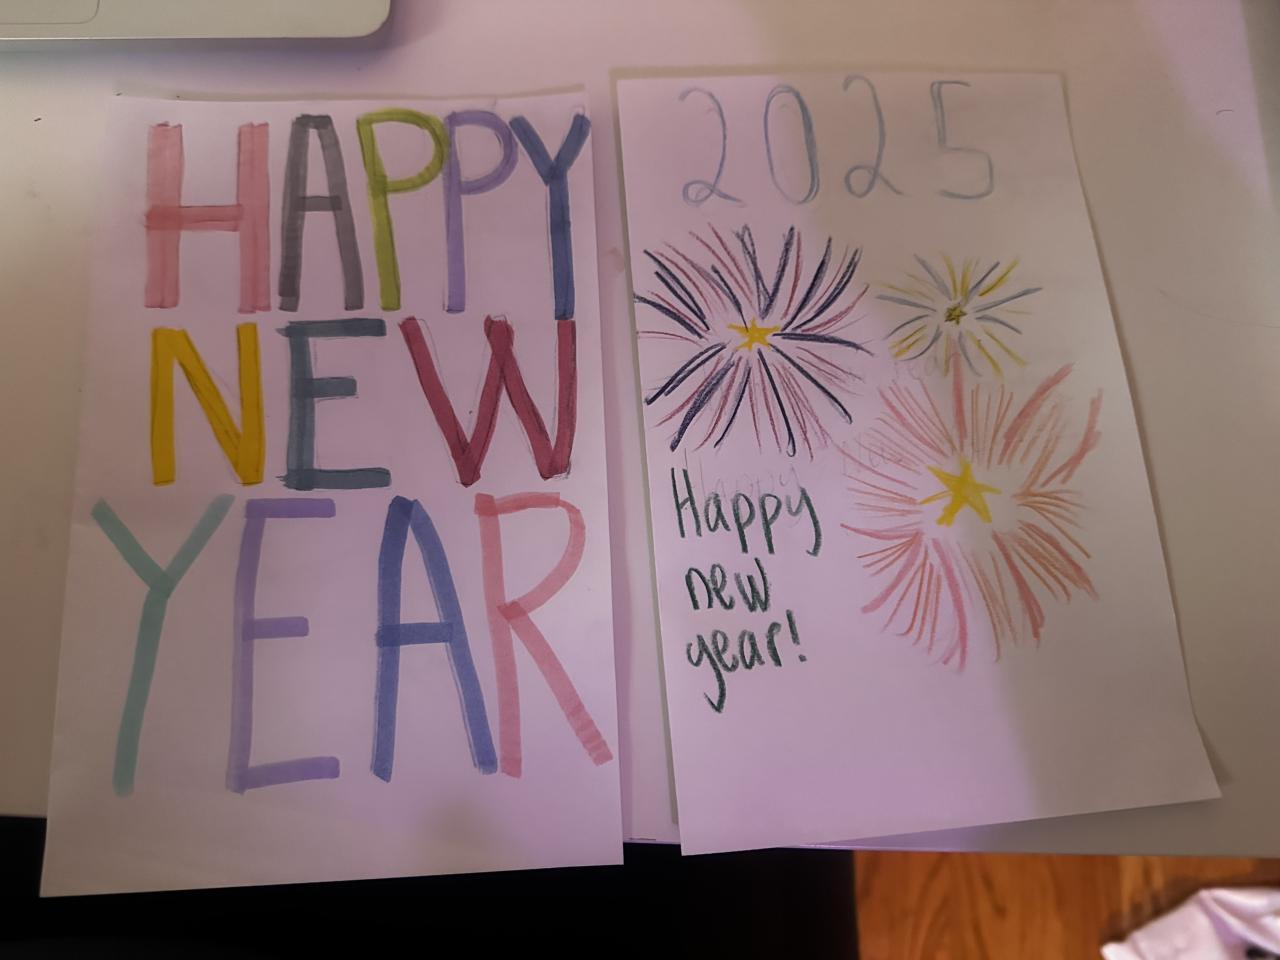 HAPPY
NEW
YEAR
2025
Happy
new
year!